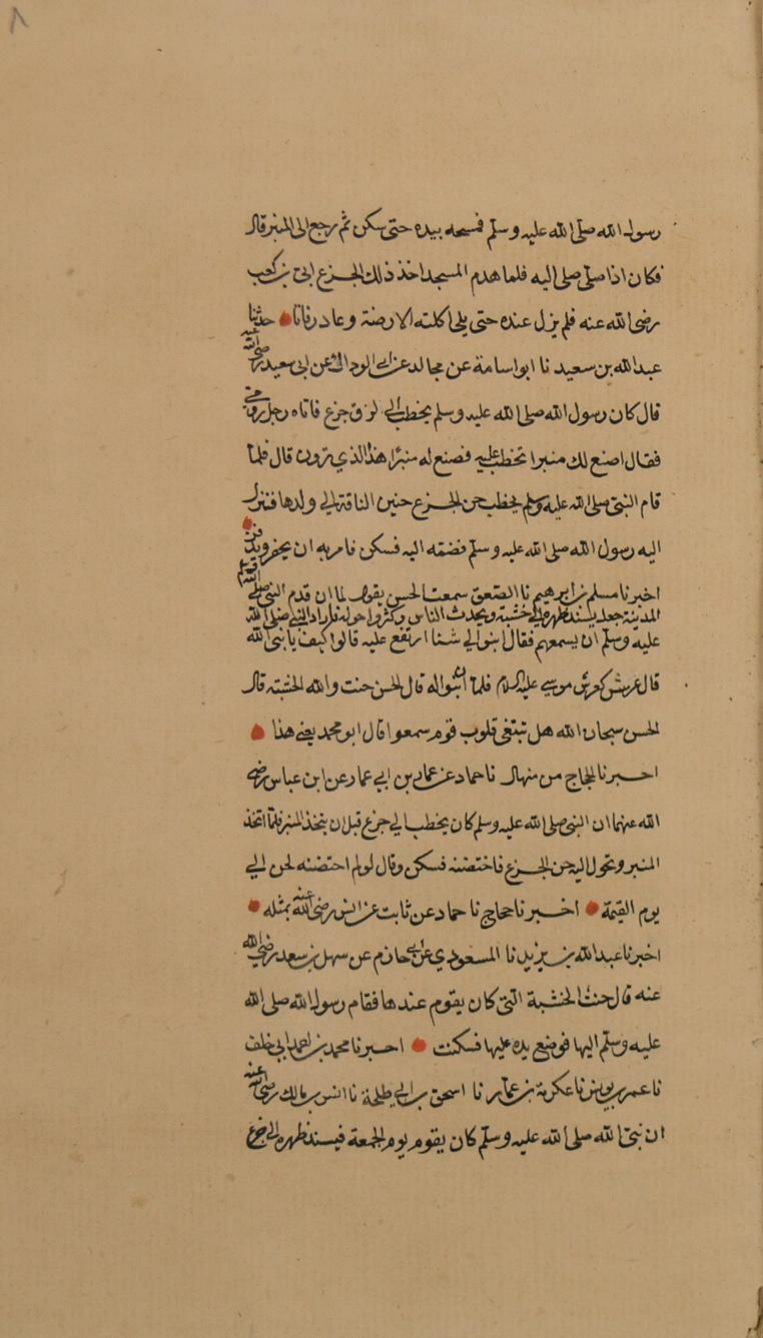 ٨
رسول الله صلى الله عليه وسلم فمسحه بيده حتى سكن ثم رجع الى المنبر قال
فكان اذا صلى صلى اليه فلما هدم المسجد اخذ ذلك الجزع ابى بن كعب
رضى الله عنه فلم يزل عنده حتى بلى اكلته الارضة وعاد رفاتا حدثنا
عبد الله بن سعيد نا ابو اسامة عن مجالد عن ابى الوداك عن ابى سعيد رضى الله عنه
قال كان رسول الله صلى الله عليه وسلم يخطب الى لزق جزع فاتاه رجل رومى
فقال اصنع لك منبرا تخطب عليه فصنع له منبرا هذا الذي ترون قال فلما
قام النبى صلى الله عليه وسلم يخطب حن الجزع حنين الناقة الي ولدها فنزل
اليه رسول الله صلى الله عليه وسلم فضمه اليه فسكن فامر به ان يحفر ويدفن
اخبرنا مسلم بن ابرهيم نا الصعق سمعت الحسن يقول لما ان قدم النبى صلى الله عليه وسلم
المدينة جعل يسند ظهره الى خشبة ويحدث الناس وكثروا حوله فاراد النبى صلى الله
عليه وسلم ان يسمعهم فقال ابنوا لي شئا ارتفع عليه قالوا كيف يا نبى الله
قال عريش كعريش موسي عليه السلام فلما ان بنوا له قال الحسن حنت والله الخشبته قال
الحسن سبحان الله هل تبتغى قلوب قوم سمعوا قال ابو محمد يعني هذا
اخبرنا الحجاج من منهال نا حماد عن عمار بن ابي عمار عن ابن عباس رضى
الله عنهما ان النبى صلى الله عليه وسلم كان يخطب الي جزع قبل ان يتخذ المنبر فلما اتخذ
المنبر وتحول اليه حن الجزع فاحتضنه فسكن وقال لو لم احتضنه لحن الي
يوم القيمة اخبرنا حجاج نا حماد عن ثابت عن انس رضى الله عنه بمثله
اخبرنا عبد الله بن يزيد نا المسعودي عن ابى حازم عن سهل بن سعد رضي الله
عنه قال حنت الخشبة التى كان يقوم عندها فقام رسول الله صلى الله
عليه وسلم اليها فوضع يده عليها فسكنت اخبرنا محمد بن احمد ابى خلف
نا عمر بن يونس نا عكرمة بن عمار نا اسحق بن ابي طلحة نا انس بن مالك رضى الله عنه
ان نبى الله صلى الله عليه وسلم كان يقوم يوم الجمعة فيسند ظهره الى جزع